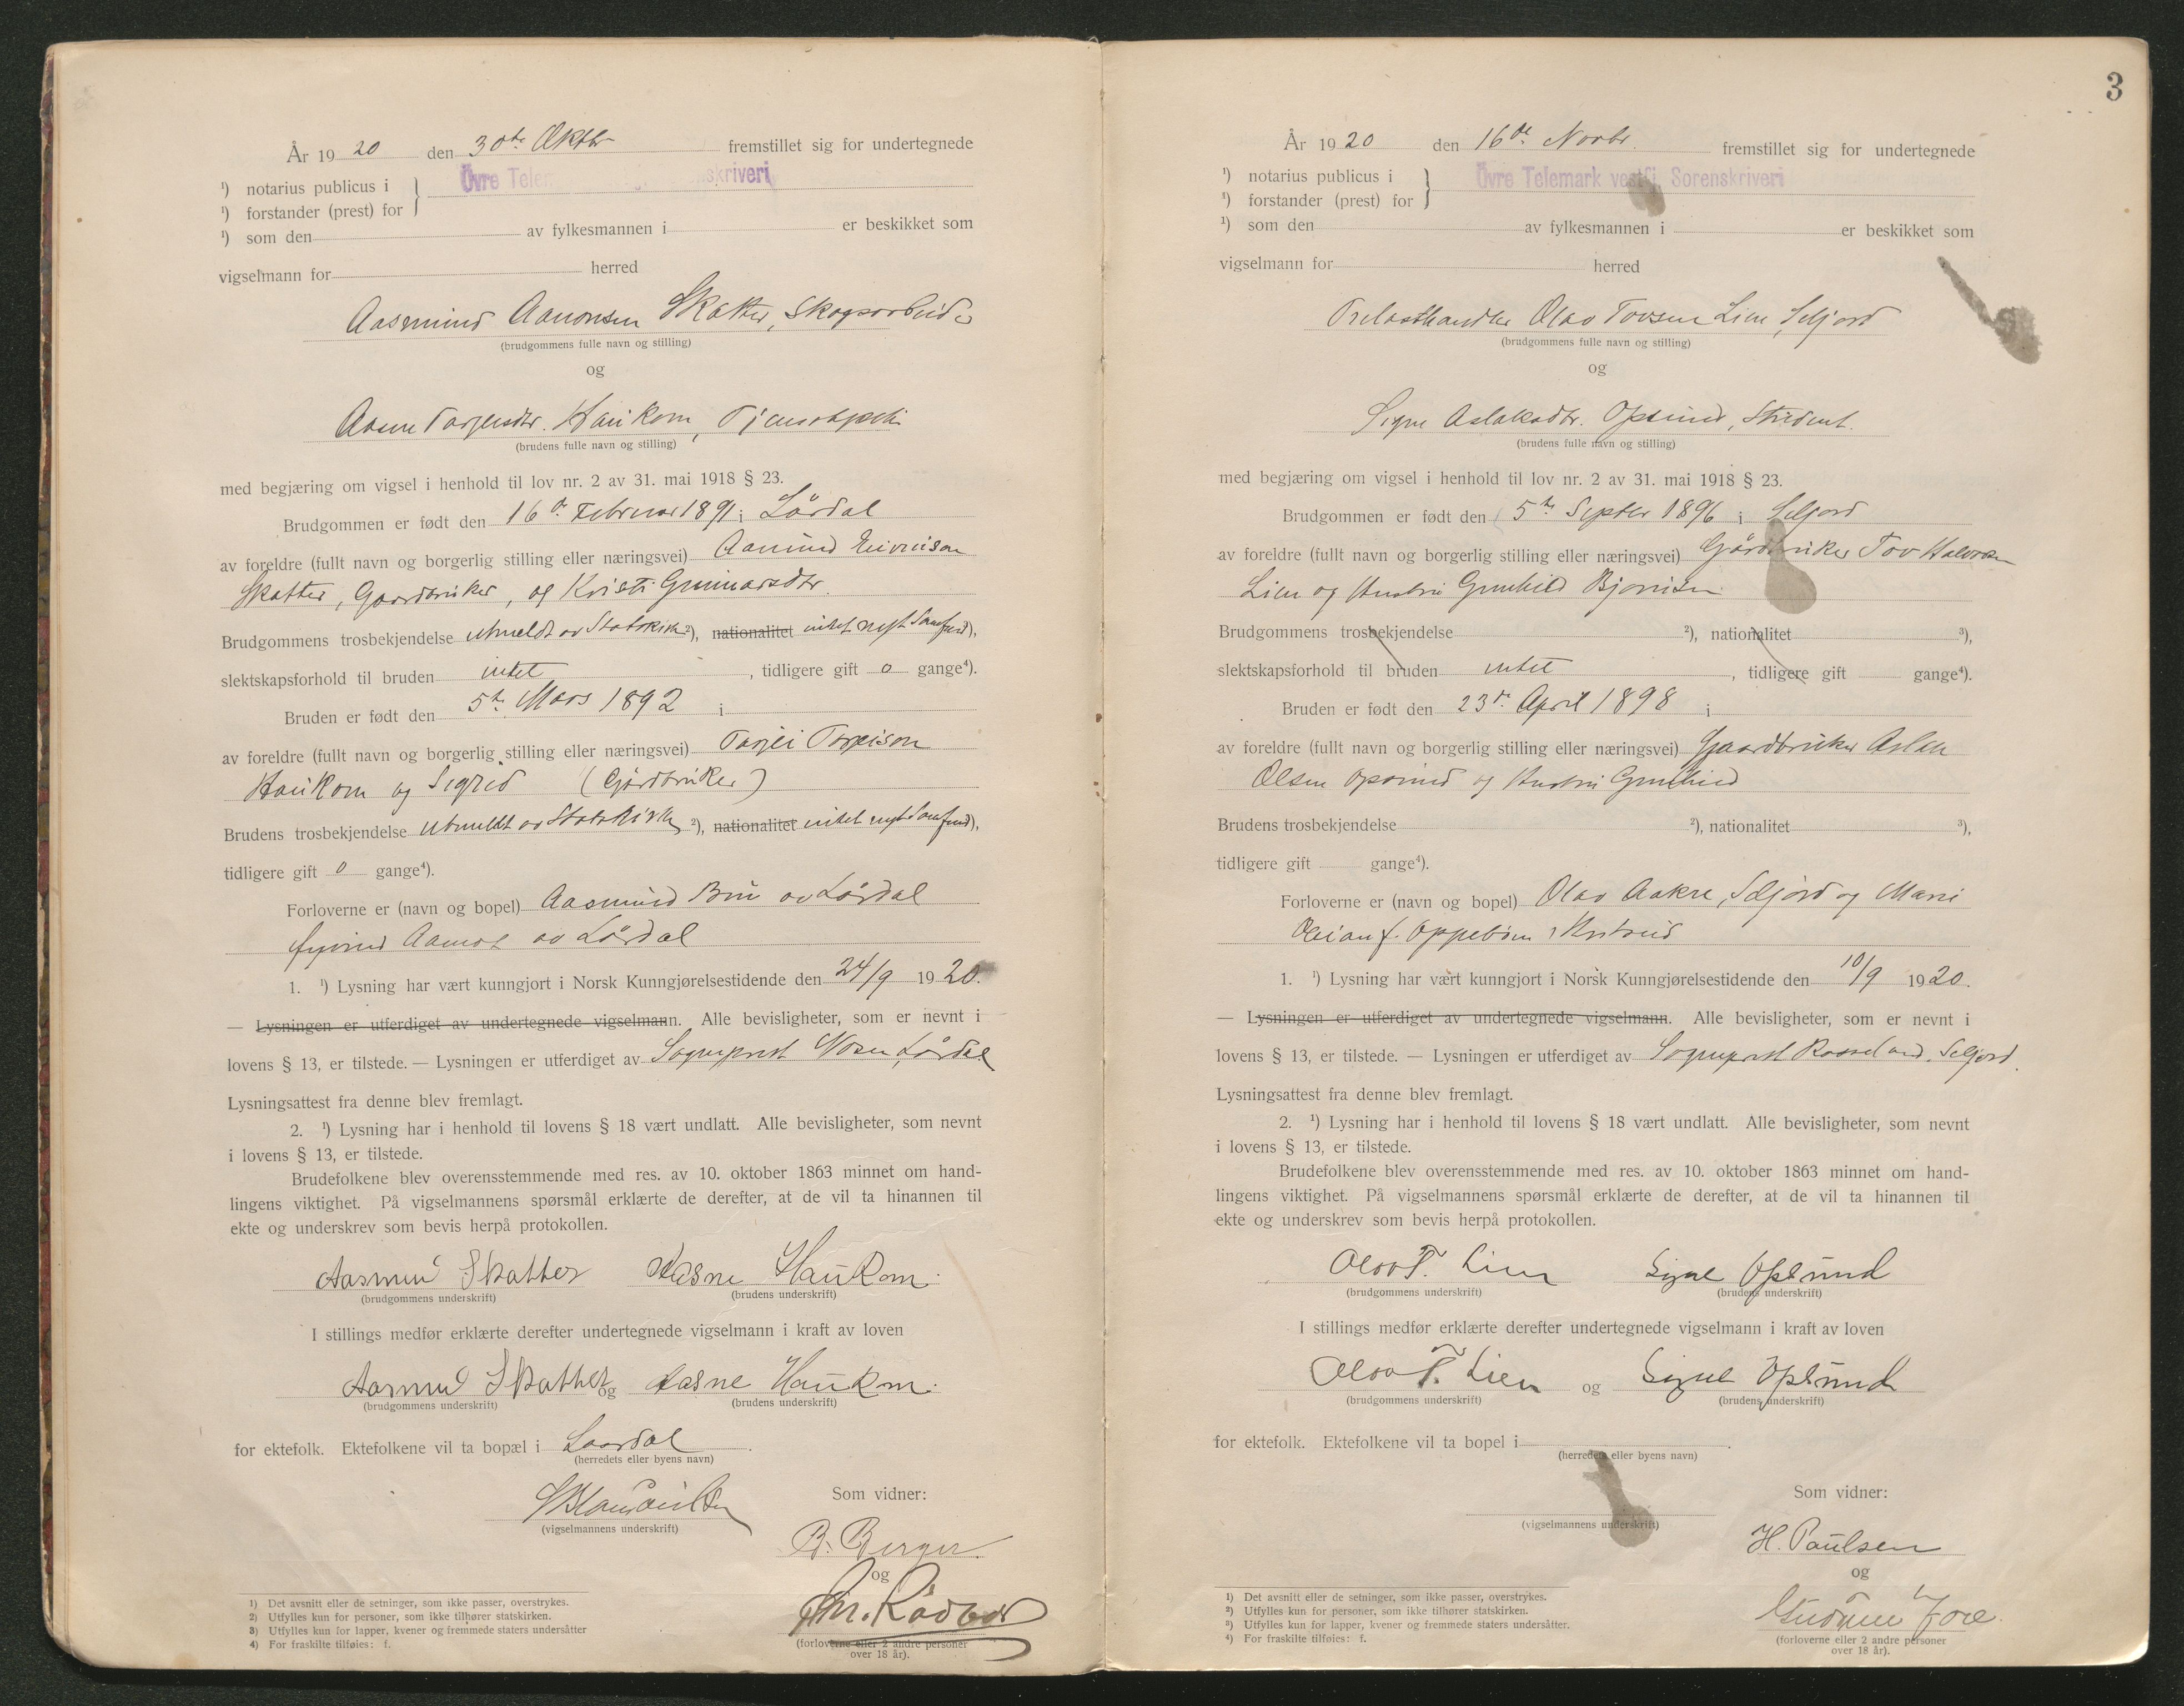 År 1920 den 30te Oktbr fremstillet sig for undertegnede
¹) notarius publicus i } Övre Telem skriveri
¹) forstander (prest) for
¹) som den av fylkesmannen i er beskikket som
vigselmann for herred
Aasmund Aanonsen Skatter, Skogsarbeider
(brudgommens fulle navn og stilling)
og
Aasne Tarjeisdtr. Haukom, Tjenestepike
(brudens fulle navn og stilling)
med begjæring om vigsel i henhold til lov nr. 2 av 31. mai 1918 § 23.
Brudgommen er født den 16de Februar 1891 i Lårdal
av foreldre (fullt navn og borgerlig stilling eller næringsvei) Aanund Eivindson
Skatter, Gaardbruker, og Kristi Gunnarsdtr.
Brudgommens trosbekjendelse utmeldt av Statskirke ²), nationalitet intet nyt Samfund),
slektskapsforhold til bruden intet, tidligere gift 0 gange⁴).
Bruden er født den 5te Mars 1892 i
av foreldre (fullt navn og borgerlig stilling eller næringsvei) Tarjei Tarjeison
Haukom og Sigrid (Gårdbruker)
Brudens trosbekjendelse utmeldt av Statskirke ²), nationalitet intet nyt Samfund),
tidligere gift 0 gange⁴).
Forloverne er (navn og bopel) Aasmund Bru av Lårdal
Øyvind Aamot av Lårdal
1. ¹) Lysning har vært kunngjort i Norsk Kunngjørelsestidende den 24/9 1920.
— Lysningen er utferdiget av undertegnede vigselmann. Alle bevisligheter, som er nevnt i
lovens § 13, er tilstede. — Lysningen er utferdiget av Sogneprest Lårdal
Lysningsattest fra denne blev fremlagt.
2. ¹) Lysning har i henhold til lovens § 18 vært undlatt. Alle bevisligheter, som nevnt
i lovens § 13, er tilstede.
Brudefolkene blev overensstemmende med res. av 10. oktober 1863 minnet om hand-
lingens viktighet. På vigselmannens spørsmål erklærte de derefter, at de vil ta hinannen til
ekte og underskrev som bevis herpå protokollen.
Aasmun Skatter Aasne Haukom.
(brudgommens underskrift) (brudens underskrift)
I stillings medfør erklærte derefter undertegnede vigselmann i kraft av loven
Aasmun Skatter og Aasne Haukom.
(brudgommens underskrift) (brudens underskrift)
for ektefolk. Ektefolkene vil ta bopæl i Laardal.
(herredets eller byens navn)
(vigselmannens underskrift)
Som vidner:
B. Berger.
og
(forloverne eller 2 andre personer
over 18 år).
1) Det avsnitt eller de setninger, som ikke passer, overstrykes.
2) Utfylles kun for personer, som ikke tilhører statskirken.
3) Utfylles kun for lapper, kvener og fremmede staters undersåtter
4) For fraskilte tilføies: f.
3
År 1920 den 16de Novbr. fremstillet sig for undertegnede
¹) notarius publicus i } Övre Telemark vestfj. Sorenskriveri
¹) forstander (prest) for
¹) som den av fylkesmannen i er beskikket som
vigselmann for herred
Trelasthandler Olav Tovsen Lien, Seljord
(brudgommens fulle navn og stilling)
og
Signe Aslaksdtr. Opsund, Student.
(brudens fulle navn og stilling)
med begjæring om vigsel i henhold til lov nr. 2 av 31. mai 1918 § 23.
Brudgommen er født den 5te Septbr 1896 i Seljord
av foreldre (fullt navn og borgerlig stilling eller næringsvei) Gårdbruker Tov Halvorsen
Lien og Hustru Gunhild Bjørnsen
Brudgommens trosbekjendelse ²), nationalitet ³),
slektskapsforhold til bruden intet, tidligere gift gange⁴).
Bruden er født den 23de April 1898 i
av foreldre (fullt navn og borgerlig stilling eller næringsvei) Gaardbruker Aslak
Olsen Opsund og Hustru Gunhild
Brudens trosbekjendelse ²), nationalitet ³),
tidligere gift gange⁴).
Forloverne er (navn og bopel) Olav Aakre, Seljord og Marie
f. Oppebøen
1. ¹) Lysning har vært kunngjort i Norsk Kunngjørelsestidende den 10/9 1920.
— Lysningen er utferdiget av undertegnede vigselmann. Alle bevisligheter, som er nevnt i
lovens § 13, er tilstede. — Lysningen er utferdiget av Sogneprest Rosseland, Seljord.
Lysningsattest fra denne blev fremlagt.
2. ¹) Lysning har i henhold til lovens § 18 vært undlatt. Alle bevisligheter, som nevnt
i lovens § 13, er tilstede.
Brudefolkene blev overensstemmende med res. av 10. oktober 1863 minnet om hand-
lingens viktighet. På vigselmannens spørsmål erklærte de derefter, at de vil ta hinannen til
ekte og underskrev som bevis herpå protokollen.
Olav T. Lien Signe Opsund
(brudgommens underskrift) (brudens underskrift)
I stillings medfør erklærte derefter undertegnede vigselmann i kraft av loven
Olav T. Lien og Signe Opsund
(brudgommens underskrift) (brudens underskrift)
for ektefolk. Ektefolkene vil ta bopel i .
(herredets eller byens navn)
(vigselmannens underskrift)
Som vidner:
H. Paulsen
og
Gudrun
(forloverne eller 2 andre personer
over 18 år).
1) Det avsnitt eller de setninger, som ikke passer, overstrykes.
²) Utfylles kun for personer, som ikke tilhører statskirken.
³) Utfylles kun for lapper, kvener og fremmede staters undersåtter.
⁴) For fraskilte tilføies: f.